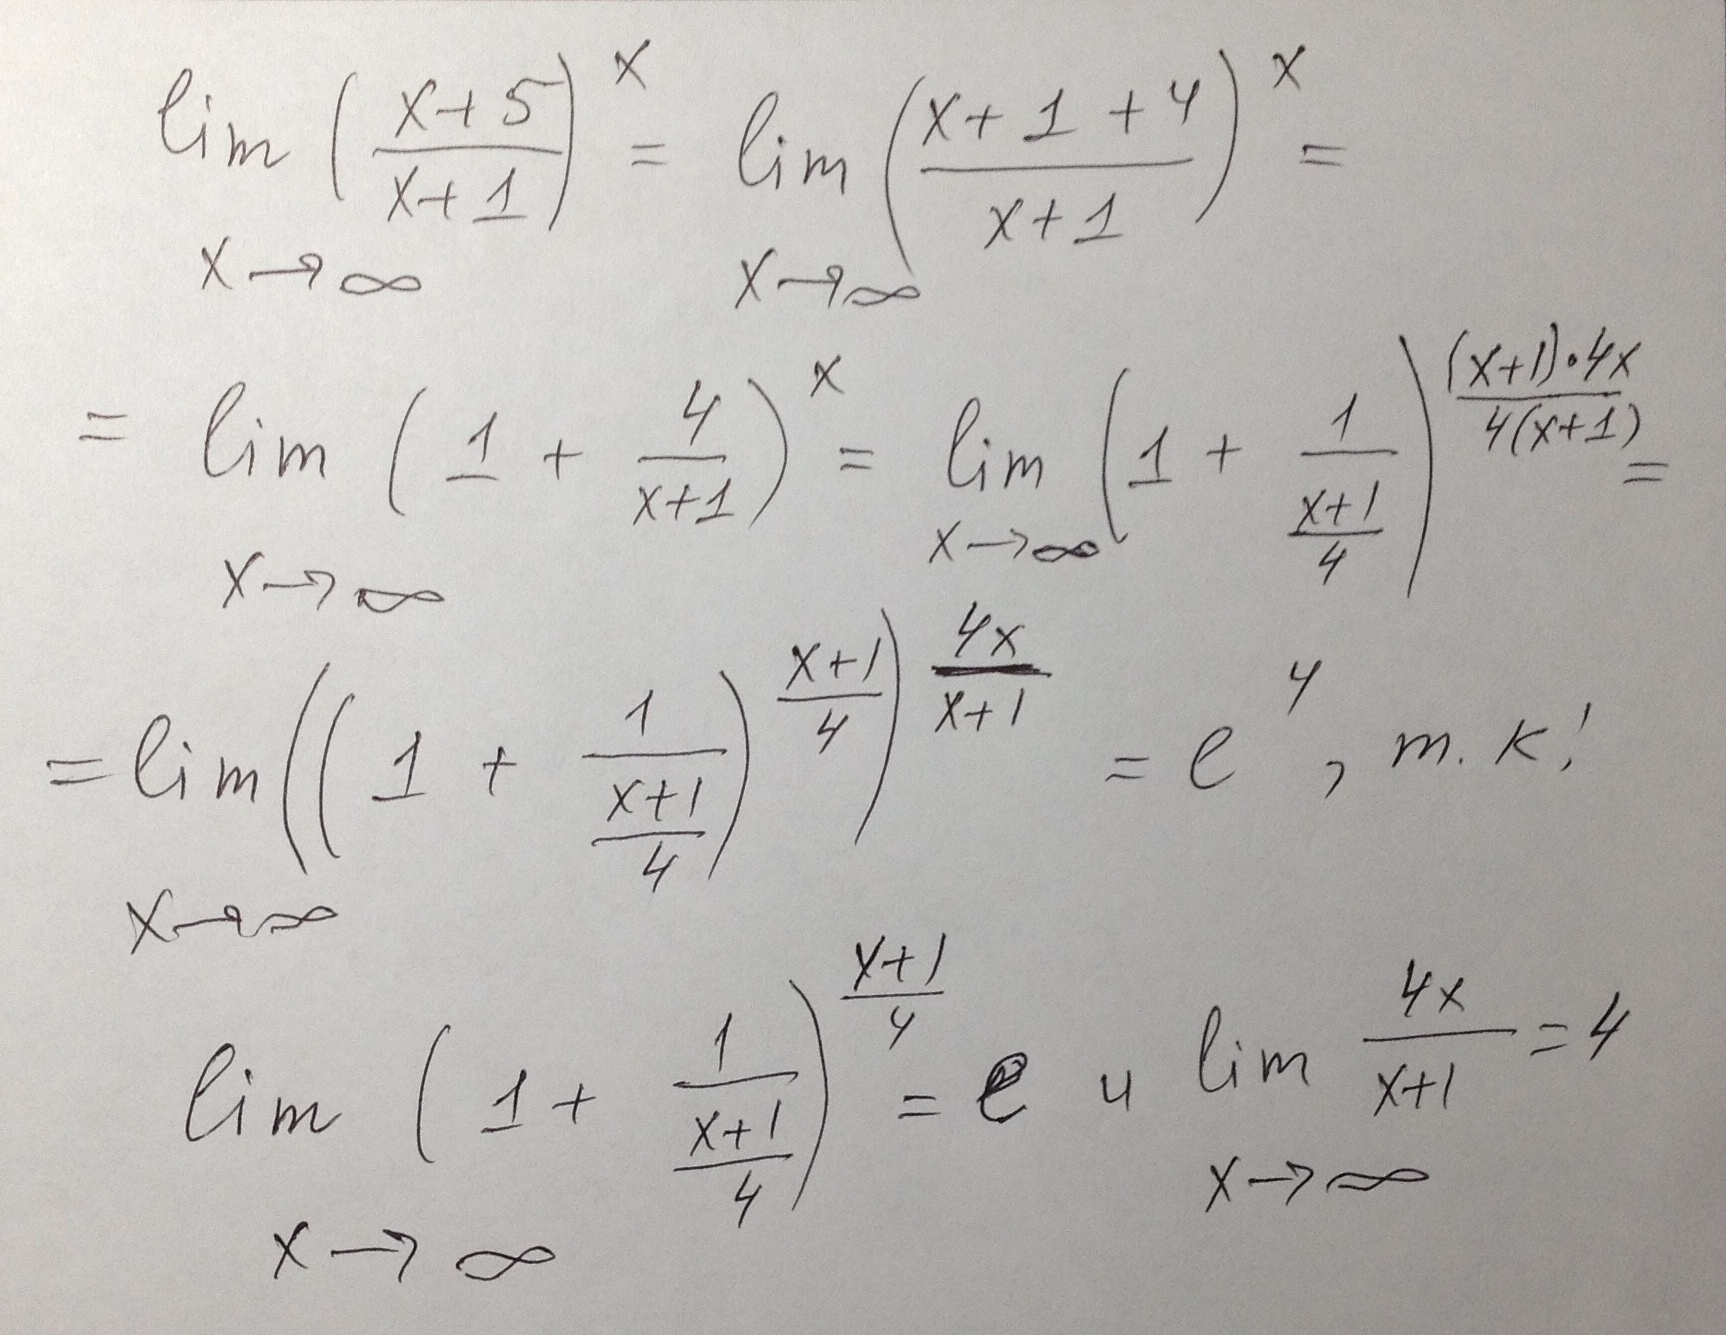 lim (x+5 / x+1)^x = lim (x+1+4 / x+1)^x =
x→∞ x→∞
= lim (1 + 4/(x+1))^x = lim (1 + 1/((x+1)/4))^((x+1)·4x / 4(x+1)) =
x→∞ x→∞
= lim ((1 + 1/((x+1)/4))^((x+1)/4))^(4x/(x+1)) = e^4, т.к:
x→∞
lim (1 + 1/((x+1)/4))^((x+1)/4) = e и lim 4x/(x+1) = 4
x→∞ x→∞